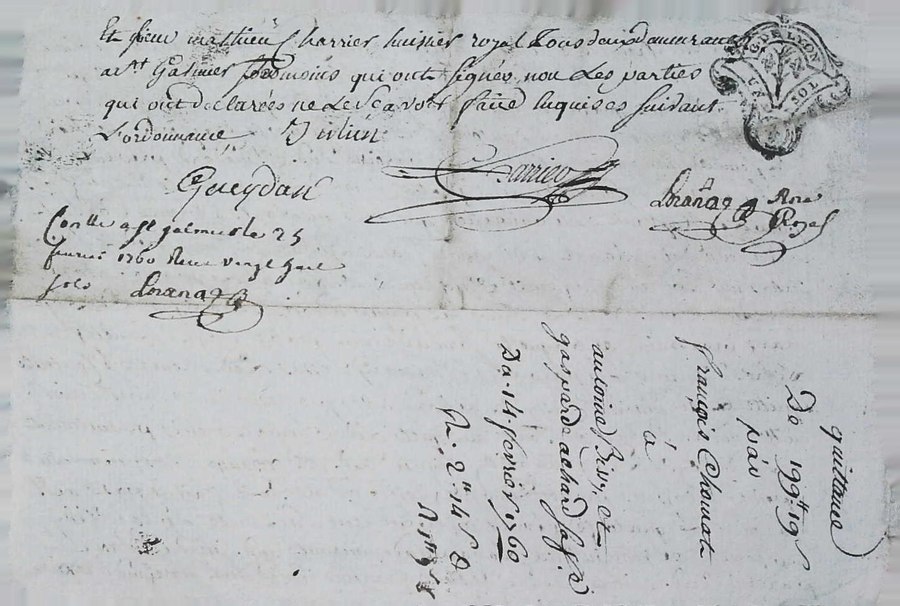 Et sieur mathieu Charrier huissier royal Tous deux demeurant
a St Galmier temoins qui ont signés non Les parties
qui ont declarées ne Le scavoir faire Enquises suivant
L'ordonnance Julien
Gueydan
Charrier
Royal
Conlle a St galmier Le 25
feuvrier 1760 Receu vingt
sols
G. DE LYON
SOL
quittance
De 199tt 19s
par
françois Chomat
à
antoine et
gasparde achard
Du 14 fevrier 1760